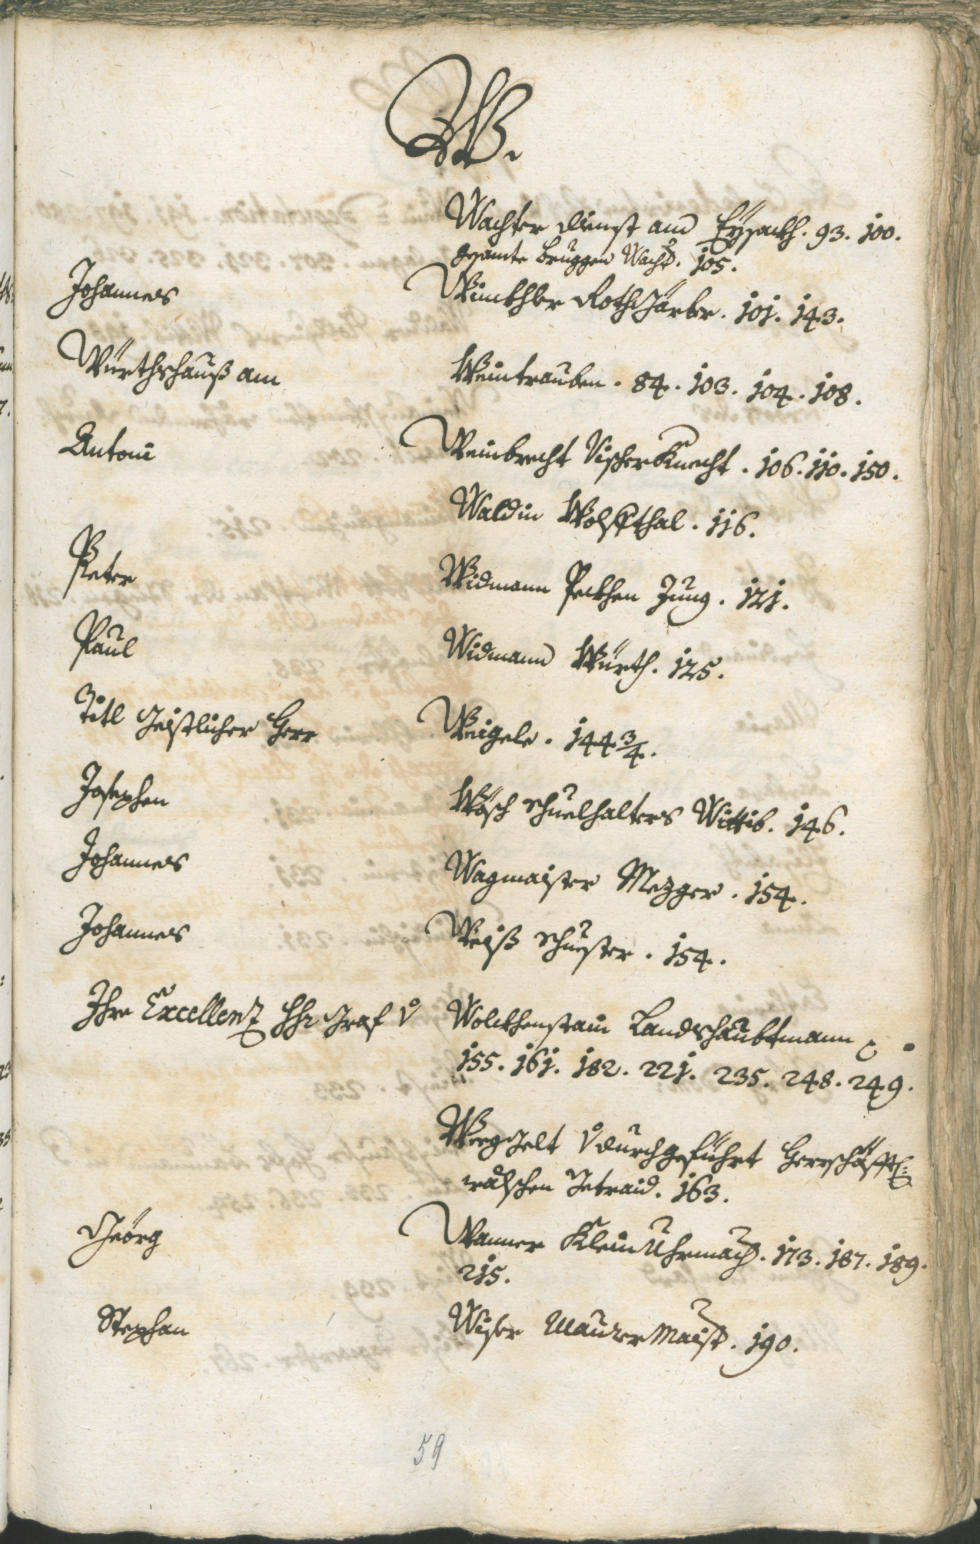 W.
Wachter dienst am Eÿsackh. 93. 100.
gesamte bruggen Wacht. 105.
Johannes Winkhler Rothgärber. 101. 143.
Würthshauß am Weintrauben. 84. 103. 104. 108.
Antoni Weinbrecht Vischer Knecht. 106. 110. 150.
Wald in Wolfsthal. 116.
Peter Widmann Peckhen Jung. 121.
Paul Widmann Würth. 125.
Titl Geistlicher Herr Weigele. 144 3/4.
Josephen Wösch Schuelhalters Wittib. 146.
Johannes Wagmaister Mezger. 154.
Johannes Weiß Schuester. 154.
Ihre Excellenz Graf v Wolckhenstain Landshaubtmann
155. 161. 182. 221. 235. 248. 249.
Weeg Gelt v durchgeführt Herrschäfftl:
wälschen Getraid. 163.
Geörg Wanner Klein Uhrmach. 173. 187. 189.
215.
Stephan Wiser Maurer Maist. 190.
59